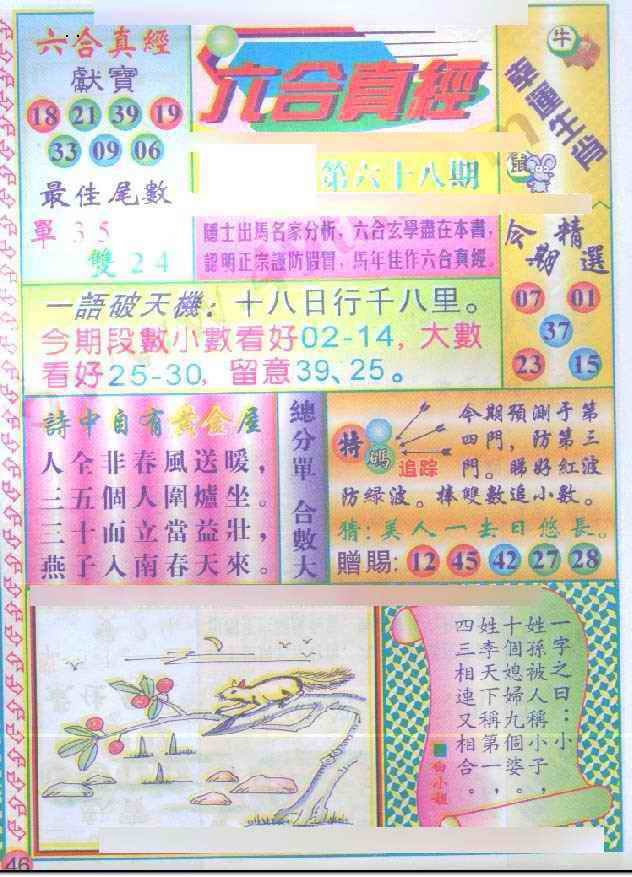 六合真經
獻寶
18 21 39 19
33 09 06
最佳尾數
單 3 5
雙 2 4
六合真經
第六十八期
隱士出馬名家分析，六合玄學盡在本書，
認明正宗謹防假冒，馬年佳作六合真經。
牛
幸運生肖
鼠
今期精選
07 01
37
23 15
一語破天機：十八日行千八里。
今期段數小數看好02-14，大數
看好25-30，留意39、25。
詩中自有黃金屋
人全非春風送暖，
三五個人圍爐坐。
三十而立當益壯，
燕子入南春天來。
總分單 合數大
特碼
追踪
今期預測于第
四門，防第三
門。睇好紅波
防緑波。捧雙數追小數。
猜：美人一去日悠長。
贈賜：12 45 42 27 28
一字之曰：小
姓孫被人稱小子，
十個媳婦九個婆。
姓李天下稱第一，
四三相連又相合。
白小姐
46